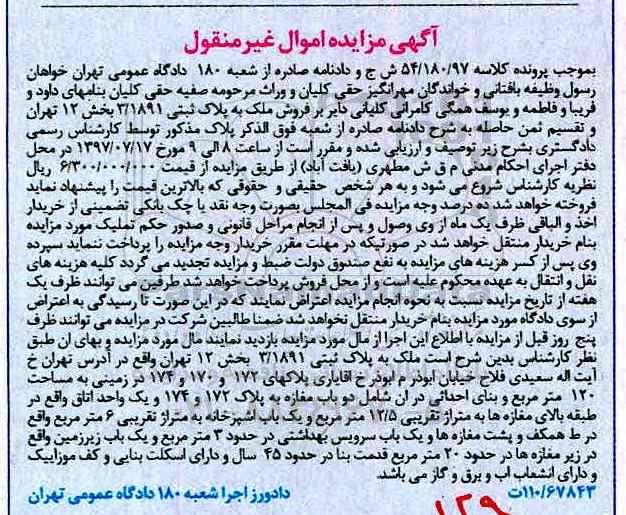 آگهی مزایده اموال غیرمنقول
بموجب پرونده کلاسه ۵۴/۱۸۰/۹۷ ش ج و دادنامه صادره از شعبه ۱۸۰ دادگاه عمومی تهران خواهان
رسول وظیفه یافتانی و خواندگان مهرانگیز حقی کلیان و وراث مرحومه صفیه حقی کلیان بنامهای داود و
فریبا و فاطمه و یوسف همگی کامرانی کلیانی دایر بر فروش ملک به پلاک ثبتی ۳/۱۸۹۱ بخش ۱۲ تهران
و تقسیم ثمن حاصله به شرح دادنامه صادره از شعبه فوق الذکر پلاک مذکور توسط کارشناس رسمی
دادگستری بشرح زیر توصیف و ارزیابی شده و مقرر است از ساعت ۸ الی ۹ مورخ ۱۳۹۷/۰۷/۱۷ در محل
دفتر اجرای احکام مدنی م ق ش مطهری (یافت آباد) از طریق مزایده از قیمت ۶/۳۰۰/۰۰۰/۰۰۰ ریال
نظریه کارشناس شروع می شود و به هر شخص حقیقی و حقوقی که بالاترین قیمت را پیشنهاد نماید
فروخته خواهد شد ده درصد وجه مزایده فی المجلس بصورت وجه نقد یا چک بانکی تضمینی از خریدار
اخذ و الباقی ظرف یک ماه از وی وصول و پس از انجام مراحل قانونی و صدور حکم تملیک مورد مزایده
بنام خریدار منتقل خواهد شد در صورتیکه در مهلت مقرر خریدار وجه مزایده را پرداخت ننماید سپرده
وی پس از کسر هزینه های مزایده به نفع صندوق دولت ضبط و مزایده تجدید می گردد کلیه هزینه های
نقل و انتقال به عهده محکوم علیه است و از محل فروش پرداخت خواهد شد طرفین می توانند ظرف یک
هفته از تاریخ مزایده نسبت به نحوه انجام مزایده اعتراض نمایند که در این صورت تا رسیدگی به اعتراض
از سوی دادگاه مورد مزایده بنام خریدار منتقل نخواهد شد ضمنا طالبین شرکت در مزایده می توانند ظرف
پنج روز قبل از مزایده با اطلاع این اجرا از مال مورد مزایده بازدید نمایند مال مورد مزایده و بهای ان طبق
نظر کارشناس بدین شرح است ملک به پلاک ثبتی ۳/۱۸۹۱ بخش ۱۲ تهران واقع در آدرس تهران خ
آیت اله سعیدی فلاح خیابان ابوذر م ابوذر خ اقایاری پلاکهای ۱۷۲ و ۱۷۰ و ۱۷۴ در زمینی به مساحت
۱۲۰ متر مربع و بنای احداثی در ان شامل دو باب مغازه به پلاک ۱۷۲ و ۱۷۴ و یک واحد اتاق واقع در
طبقه بالای مغازه ها به متراژ تقریبی ۱۲/۵ متر مربع و یک باب اشپزخانه به متراژ تقریبی ۶ متر مربع واقع
در ط همکف و پشت مغازه ها و یک باب سرویس بهداشتی در حدود ۳ متر مربع و یک باب زیرزمین واقع
در زیر مغازه ها در حدود ۲۰ متر مربع قدمت بنا در حدود ۴۵ سال و دارای اسکلت بنایی و کف موزاییک
و دارای انشعاب اب و برق و گاز می باشد.
۱۱۰/۶۷۸۴۳ت دادورز اجرا شعبه ۱۸۰ دادگاه عمومی تهران
۱۲۹